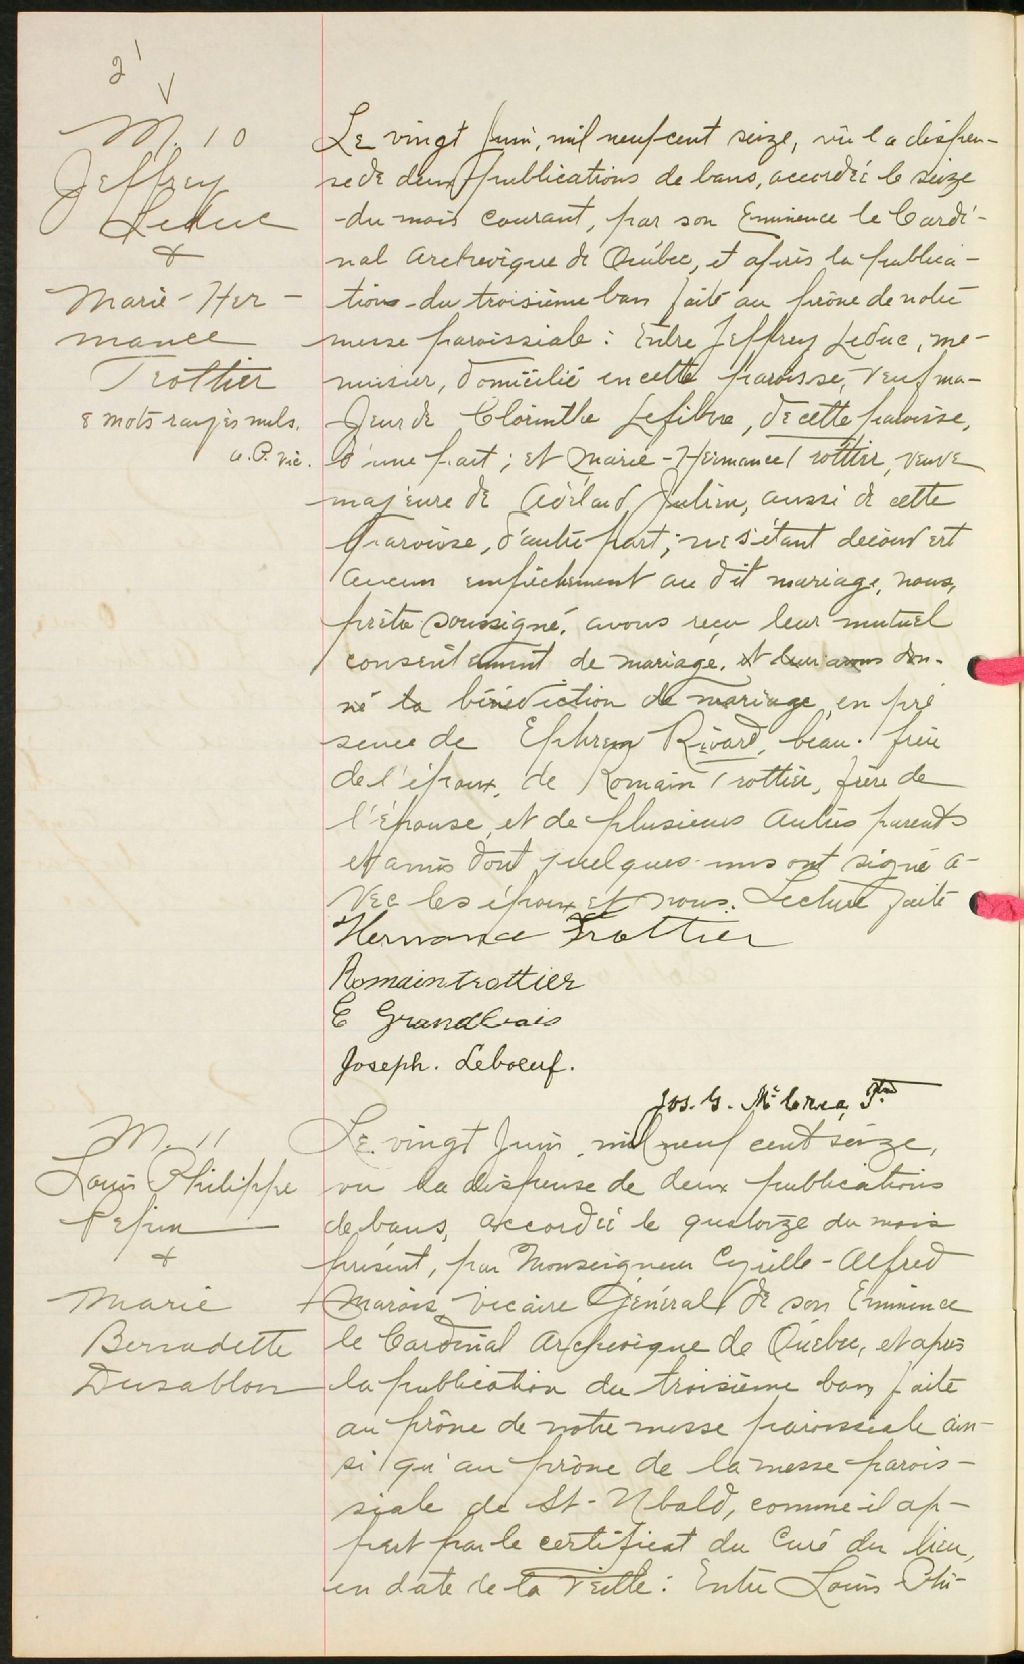 2'
V
M. 10
Jeffrey
Leduc
&
Marie-Her-
mance
Trottier
8 mots rayés nuls.
vic.
Le vingt Juin, mil neuf cent seize, vu la dispen-
se de deux publications de bans, accordée le seize
du mois courant, par son Eminence le Cardi-
nal Archevêque de Québec, et après la publica-
tion du troisième ban faite au prône de notre
messe paroissiale : Entre Jeffrey Leduc, me-
nuisier, domicilié en cette paroisse, veuf ma-
jeur de Clorinthe Lefebvre, de cette paroisse,
d'une part ; et Marie-Hermance Trottier, veuve
majeure de Adélard Julien, aussi de cette
paroisse, d'autre part ; ne s'étant découvert
aucun empêchement au dit mariage, nous,
prêtre soussigné, avons reçu leur mutuel
consentement de mariage, et leur avons don-
né la bénédiction de mariage, en pré
sence de Ephrem Rivard, beau-frère
de l'époux, de Romain Trottier, frère de
l'épouse, et de plusieurs autres parents
et amis dont quelques-uns ont signé a-
vec les époux et nous. Lecture faite
Hermance Trottier
Romain trottier
E Grandbois
Joseph. Leboeuf.
Jos. G. McCrea, Ptre
M. 11
Louis Philippe
Pepin
&
Marie
Bernadette
Dusablon
Le vingt Juin, mil neuf cent seize,
vu la dispense de deux publications
de bans, accordée le quatorze du mois
présent, par Monseigneur Cyrille-Alfred
Marois, Vicaire Général de son Eminence
le Cardinal Archevêque de Québec, et après
la publication du troisième ban faite
au prône de notre messe paroissiale ain-
si qu'au prône de la messe parois-
siale de St-Ubald, comme il ap-
pert par le certificat du Curé du lieu,
en date de la veille : Entre Louis Phi-